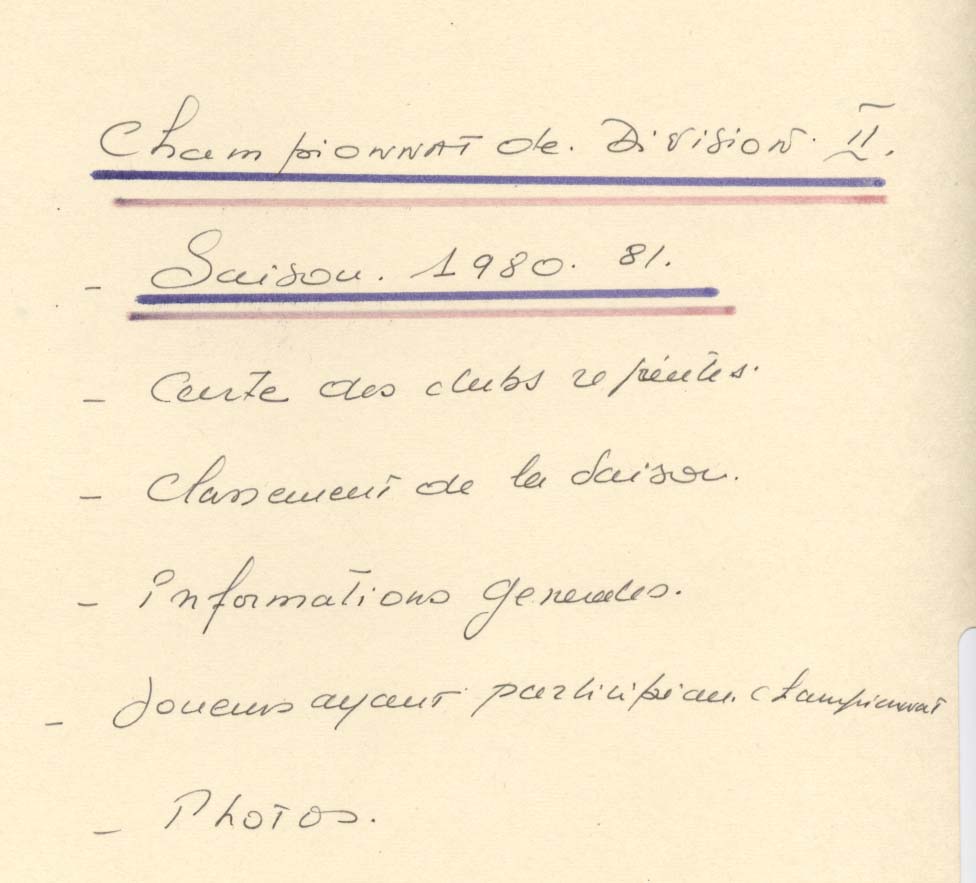 Championnat de. Division. II.
- Saison. 1980. 81.
- Carte des clubs
- Classement de la Saison.
- informations generales.
- Joueurs ayant participé au. championnat
- Photos.